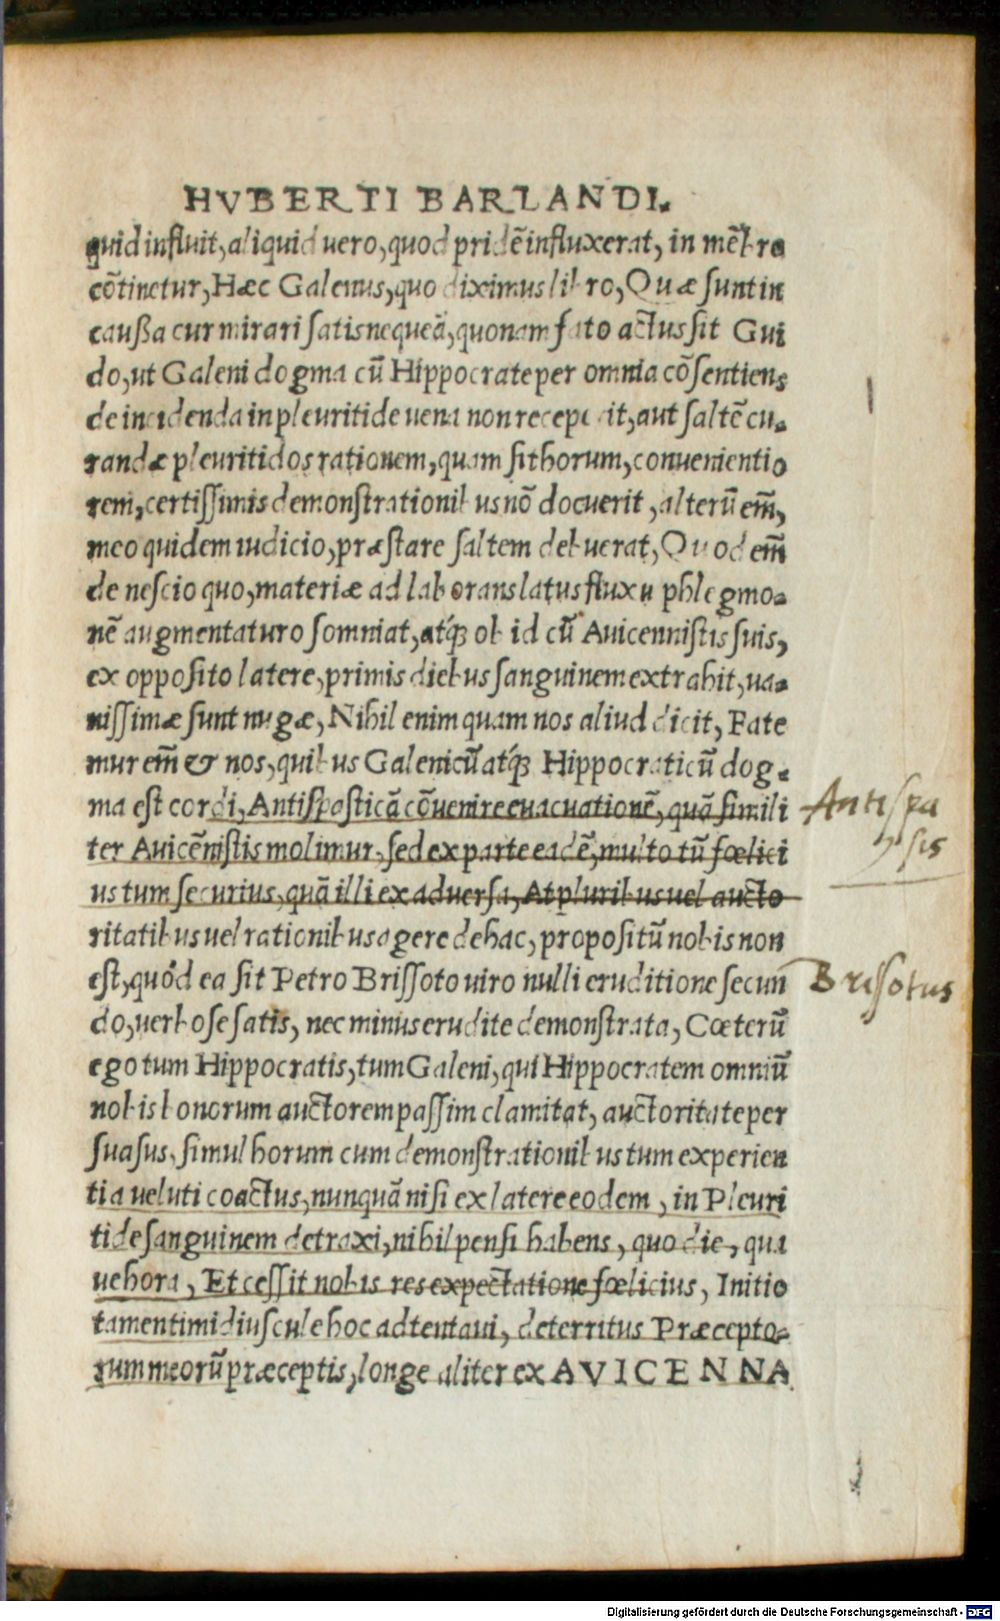 HVBERTI BARLANDI.
quid influit, aliquid vero, quod pridē influxerat, in mēbro
cōtinetur, Hæc Galenus, quo diximus libro, Quæ sunt in
caußa cur mirari satis nequeā, quonam fato actus sit Gui
do, ut Galeni dogma cū Hippocrate per omnia cōsentiens
de incidenda in pleuritide uena non receperit, aut saltē cu-
randæ pleuritidos rationem, quam sit horum, convenientio
rem, certissimis demonstrationibus nō docuerit, alterū em̄,
meo quidem iudicio, præstare saltem debuerat, Quod em̄
de nescio quo, materiæ ad lab orans latus fluxu phlegmo-
nē augmentaturo somniat, atq́; ob id cū Avicennistis suis,
ex opposito latere, primis diebus sanguinem extrahit, va-
nissimæ sunt nugæ, Nihil enim quam nos aliud dicit, Fate
mur em̄ & nos, quibus Galenicū atq́; Hippocraticū dog-
ma est cordi, Antispasticā cōvenire evacuationē, quā simili
ter Avicēnistis molimur, sed ex parte eadē, multo tū fœlici
us tum securius, quā illi ex adversa, At pluribus vel aucto
ritatibus vel rationibus agere de hac, propositū nobis non
est, quòd ea sit Petro Brissoto viro nulli eruditione secun
do, verbose satis, nec minus erudite demonstrata, Cœterū
ego tum Hippocratis, tum Galeni, qui Hippocratem omniū
nobis bonorum auctorem passim clamitat, auctoritate per
suasus, simul horum cum demonstrationibus tum experien
tia veluti coactus, nunquā nisi ex latere eodem, in Pleuri
tide sanguinem detraxi, nihil pensi habens, quo die, qua
ve hora, Et cessit nobis res expectatione fœlicius, Initio
tamen timidiuscule hoc adtentavi, deterritus Præcepto-
rum meorū præceptis, longe aliter ex AVICENNA
Antispa
sis
Brissotus
Digitalisierung gefördert durch die Deutsche Forschungsgemeinschaft - DFG